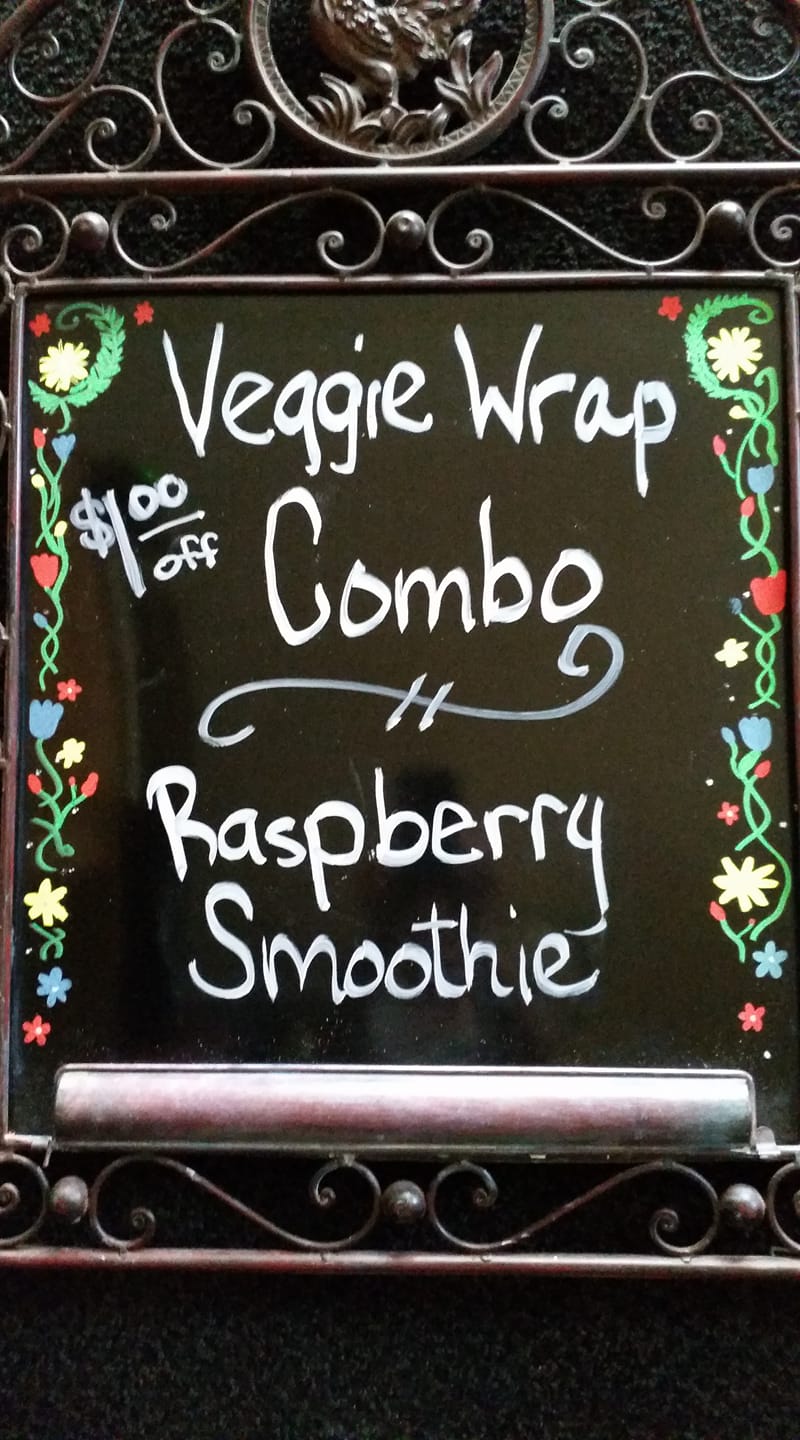 Veggie Wrap
$1.00
off
Combo
Raspberry
Smoothie